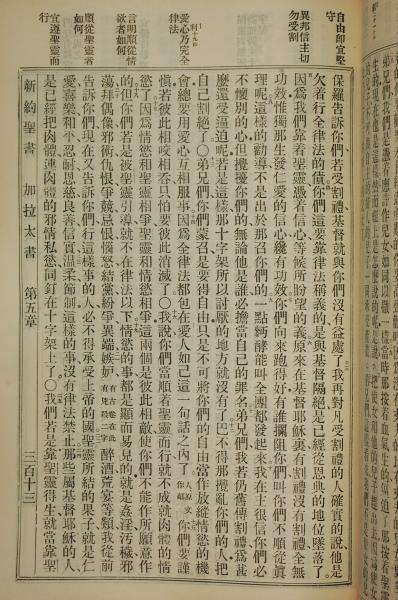 自由即宜堅
守
異邦信主切
勿受割
愛心乃完全
律法
言明順從情
欲者如何
順從聖靈者
如何
宜遵聖靈而
行
保羅告訴你們若受割禮基督就與你們沒有益處了我再對凡受割禮的人確實的說他是
欠着行全律法的債你們這要靠律法稱義的是與基督隔絕是已經從恩典的地位墜落了
因爲我們靠着聖靈憑着信心等候所盼望的義原來在基督耶穌裏有割禮沒有割禮全無
功效惟獨那生發仁愛的信心纔有功效你們向來跑得好有誰攔阻你們叫你們不順從眞
理呢這樣的勸導不是出於那召你們的一點麪酵能叫全團都發起來我在主很信你們必
不懷別的心但攪擾你們的無論他是誰必擔當自己的罪名弟兄們我若仍舊傳割禮爲甚
麼還受逼迫呢若是這樣那十字架所以討厭的地方就沒有了巴不得那攪亂你們的人把
自己割絕了〇弟兄們你們蒙召是要得自由只是不可將你們的自由當作放縱情慾的機
會總要用愛心互相服事因爲全律法都包在愛人如己這一句話之內了你們要謹
愼若彼此相咬相吞只怕要彼此消滅了〇我說你們當順着聖靈而行就不成就肉體的情
慾了因爲情慾和聖靈相爭聖靈和情慾相爭這兩個是彼此相敵使你們不能作所願意作
的但你們若是被聖靈引導就不在律法以下情慾的事都是顯而易見的就是姦淫汚穢邪
蕩拜偶像邪術仇恨爭競忌恨惱怒結黨紛爭異端嫉妒醉酒荒宴等類我從前
告訴你們現在又告訴你們行這樣事的人必不得承受上帝的國聖靈所結的果子就是仁
愛喜樂和平忍耐恩慈良善信實溫柔節制這樣的事沒有律法禁止那些屬基督耶穌的人
是已經把肉體連肉體的邪情私慾同釘在十字架上了〇我們若是靠聖靈得生就當靠聖
新約聖書　加拉太書　第五章　三百十三